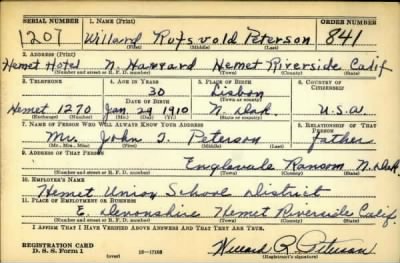 SERIAL NUMBER 1. NAME (Print) ORDER NUMBER
1207 Willard Rufsvold Peterson 841
(First) (Middle) (Last)
2. ADDRESS (Print)
Hemet Hotel N. Harvard Hemet Riverside Calif
(Number and street or R. F. D. number) (Town) (County) (State)
3. TELEPHONE 4. AGE IN YEARS 5. PLACE OF BIRTH 6. COUNTRY OF CITIZENSHIP
30 Lisbon
DATE OF BIRTH (Town or county)
Hemet 1270 Jan 29 1910 N. Dak. U.S.A.
(Exchange) (Number) (Mo.) (Day) (Yr.) (State or country)
7. NAME OF PERSON WHO WILL ALWAYS KNOW YOUR ADDRESS 8. RELATIONSHIP OF THAT PERSON
Mr. John T. Peterson father
(Mr., Mrs., Miss) (First) (Middle) (Last)
9. ADDRESS OF THAT PERSON
Englevale Ransom N. Dak
(Number and street or R. F. D. number) (Town) (County) (State)
10. EMPLOYER'S NAME
Hemet Union School District
11. PLACE OF EMPLOYMENT OR BUSINESS
E. Devonshire Hemet Riverside Calif.
(Number and street or R. F. D. number) (Town) (County) (State)
I AFFIRM THAT I HAVE VERIFIED ABOVE ANSWERS AND THAT THEY ARE TRUE.
REGISTRATION CARD
D. S. S. Form 1 (over) Willard R. Peterson
(Registrant's signature)